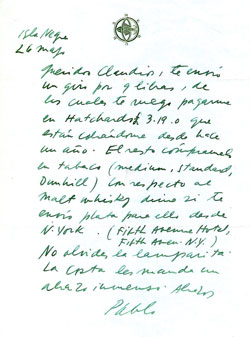 Isla Negra
26 mayo
Queridos Claudios, te envío
un giro por 9 libras, de
las cuales te ruego pagarme
en Hatchards £ 3.19.0 que
están cobrándome desde hace
un año. El resto cómpramelo
en tabaco (medium, Standard,
Dunhill) Con respecto al
malt whisky dime si te
envío plata para ello desde
N. York. (Fifth Avenue Hotel,
Fifth Aven. N.Y.)
No olvides la lamparita.
La Costa les manda un
abrazo inmenso. Abrazos
Pablo